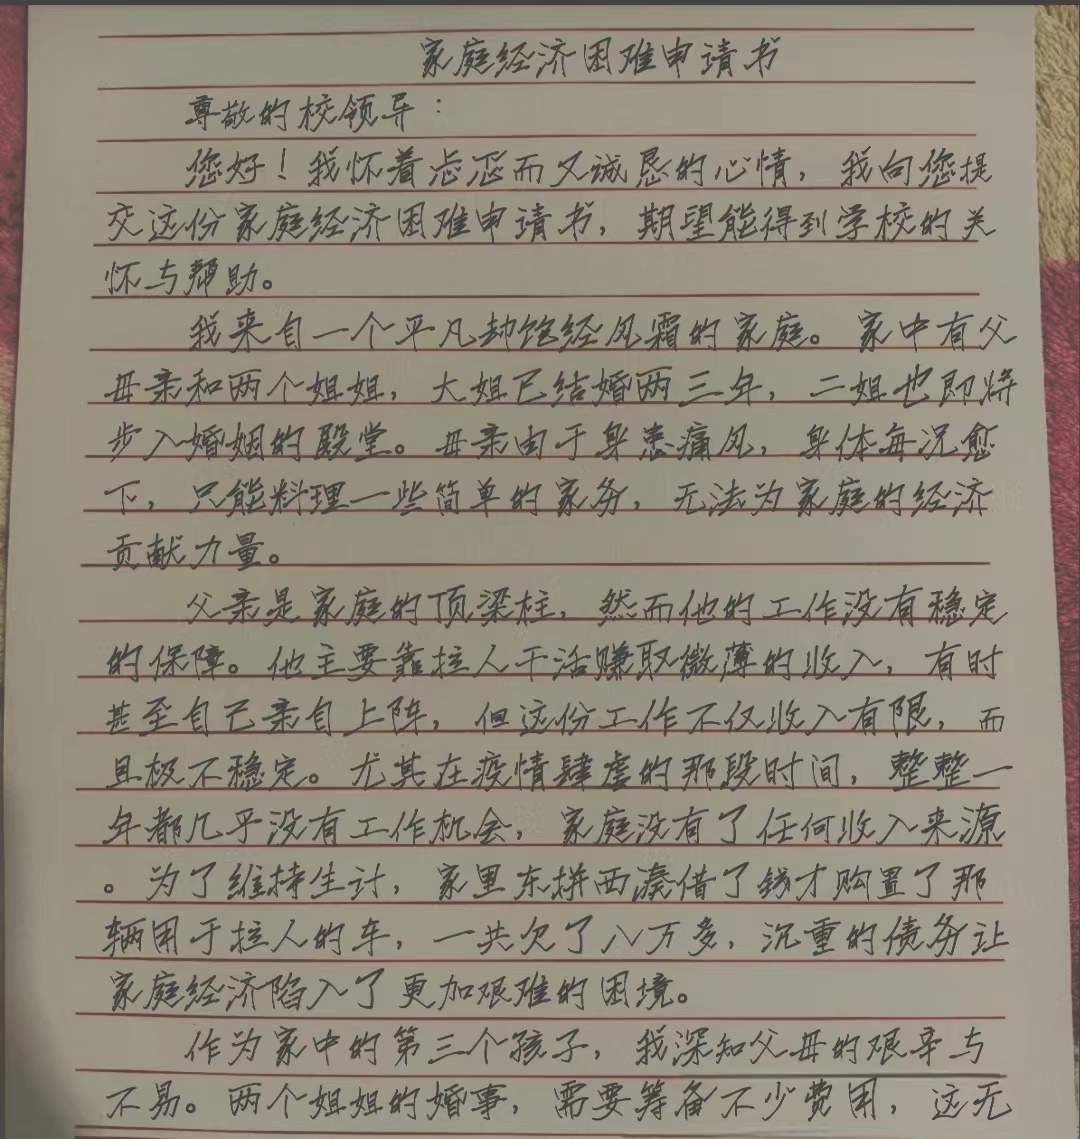 家庭经济困难申请书
尊敬的校领导：
您好！我怀着忐忑而又诚恳的心情，我向您提
交这份家庭经济困难申请书，期望能得到学校的关
怀与帮助。
我来自一个平凡却饱经风霜的家庭。家中有父
母亲和两个姐姐，大姐已结婚两三年，二姐也即将
步入婚姻的殿堂。母亲由于身患痛风，身体每况愈
下，只能料理一些简单的家务，无法为家庭的经济
贡献力量。
父亲是家庭的顶梁柱，然而他的工作没有稳定
的保障。他主要靠拉人干活赚取微薄的收入，有时
甚至自己亲自上阵，但这份工作不仅收入有限，而
且极不稳定。尤其在疫情肆虐的那段时间，整整一
年都几乎没有工作机会，家庭没有了任何收入来源
。为了维持生计，家里东拼西凑借了钱才购置了那
辆用于拉人的车，一共欠了八万多，沉重的债务让
家庭经济陷入了更加艰难的困境。
作为家中的第三个孩子，我深知父母的艰辛与
不易。两个姐姐的婚事，需要筹备不少费用，这无